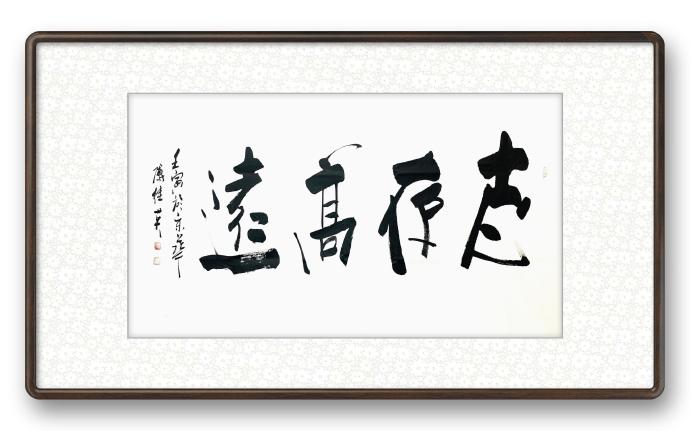 志存高遠
壬寅於京華